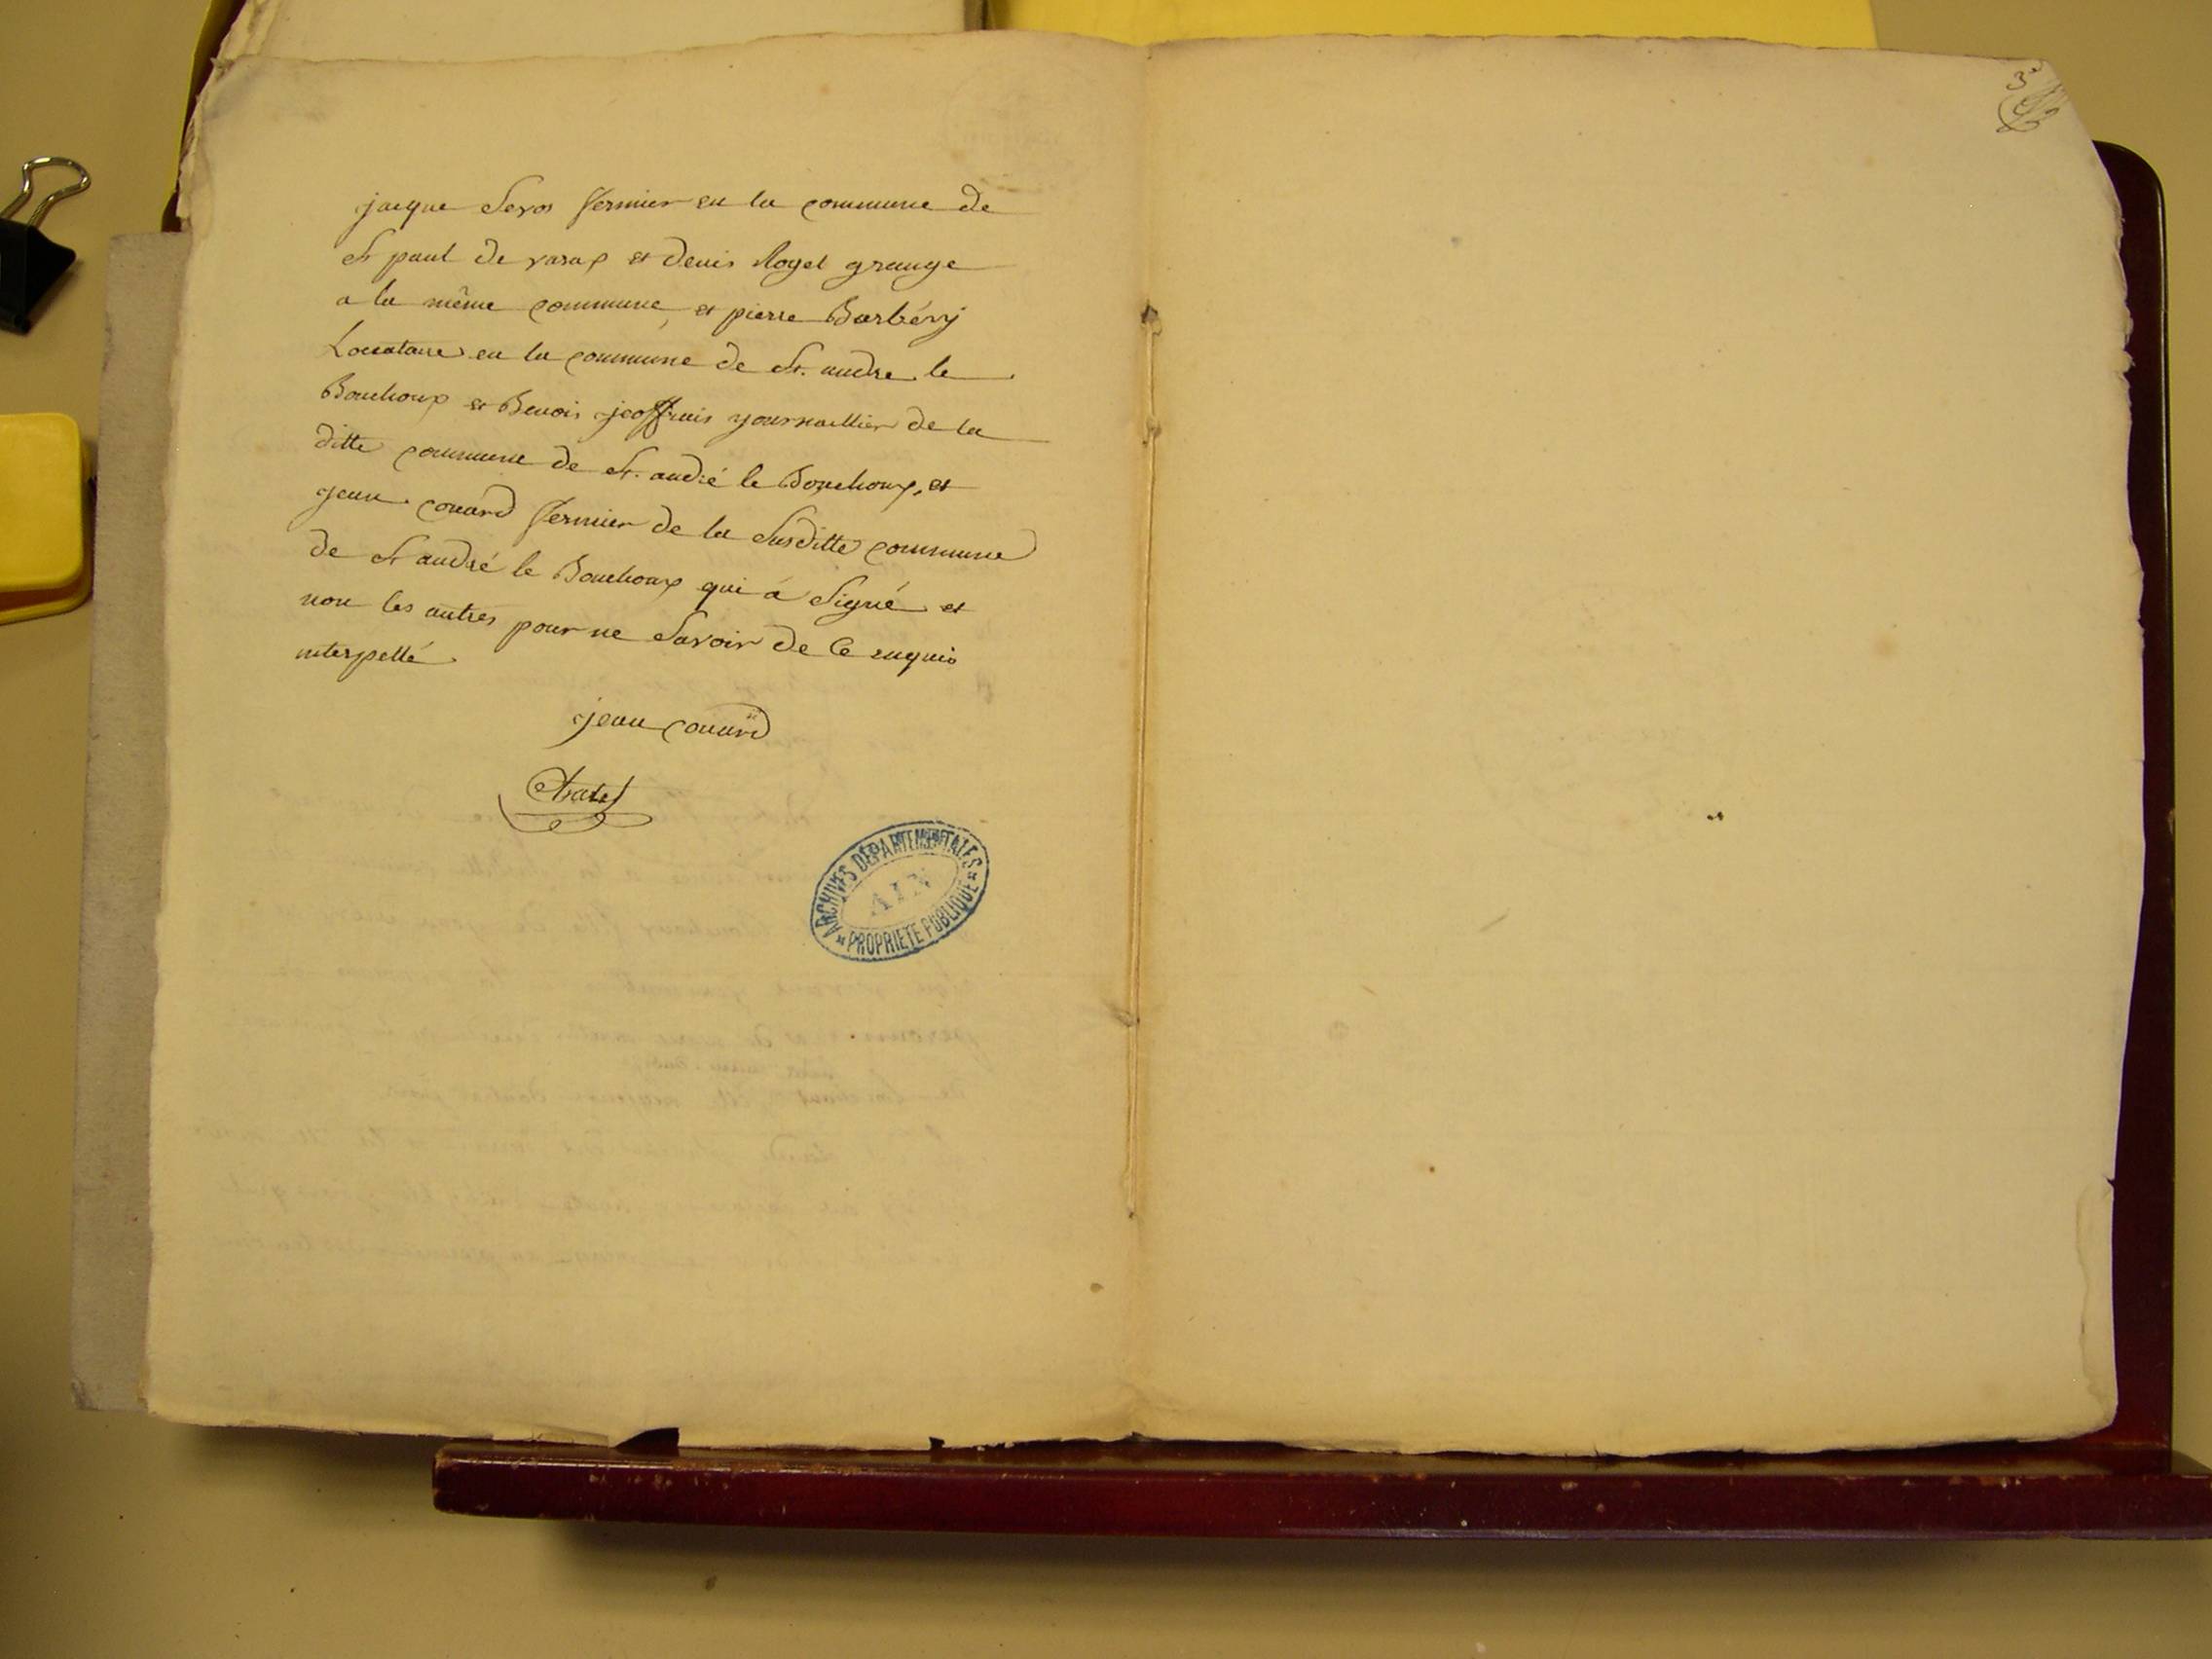 jacque Seros fermier en la commune de
St paul de varax et denis Royet grange
a la même commune, et pierre Barbéry
Locataire en la commune de St. andre le
Bouchoux et Benois jeoffrais journallier de la
ditte commune de St. andré le Bouchoux, et
jean couard fermier de la Susditte commune
de St andré le Bouchoux qui á Signé et
non les autres pour ne Savoir de Ce enquis
interpellé.
jean couard
Chatel
ARCHIVES DÉPARTEMENTALES
AIN
PROPRIÉTÉ PUBLIQUE
3e